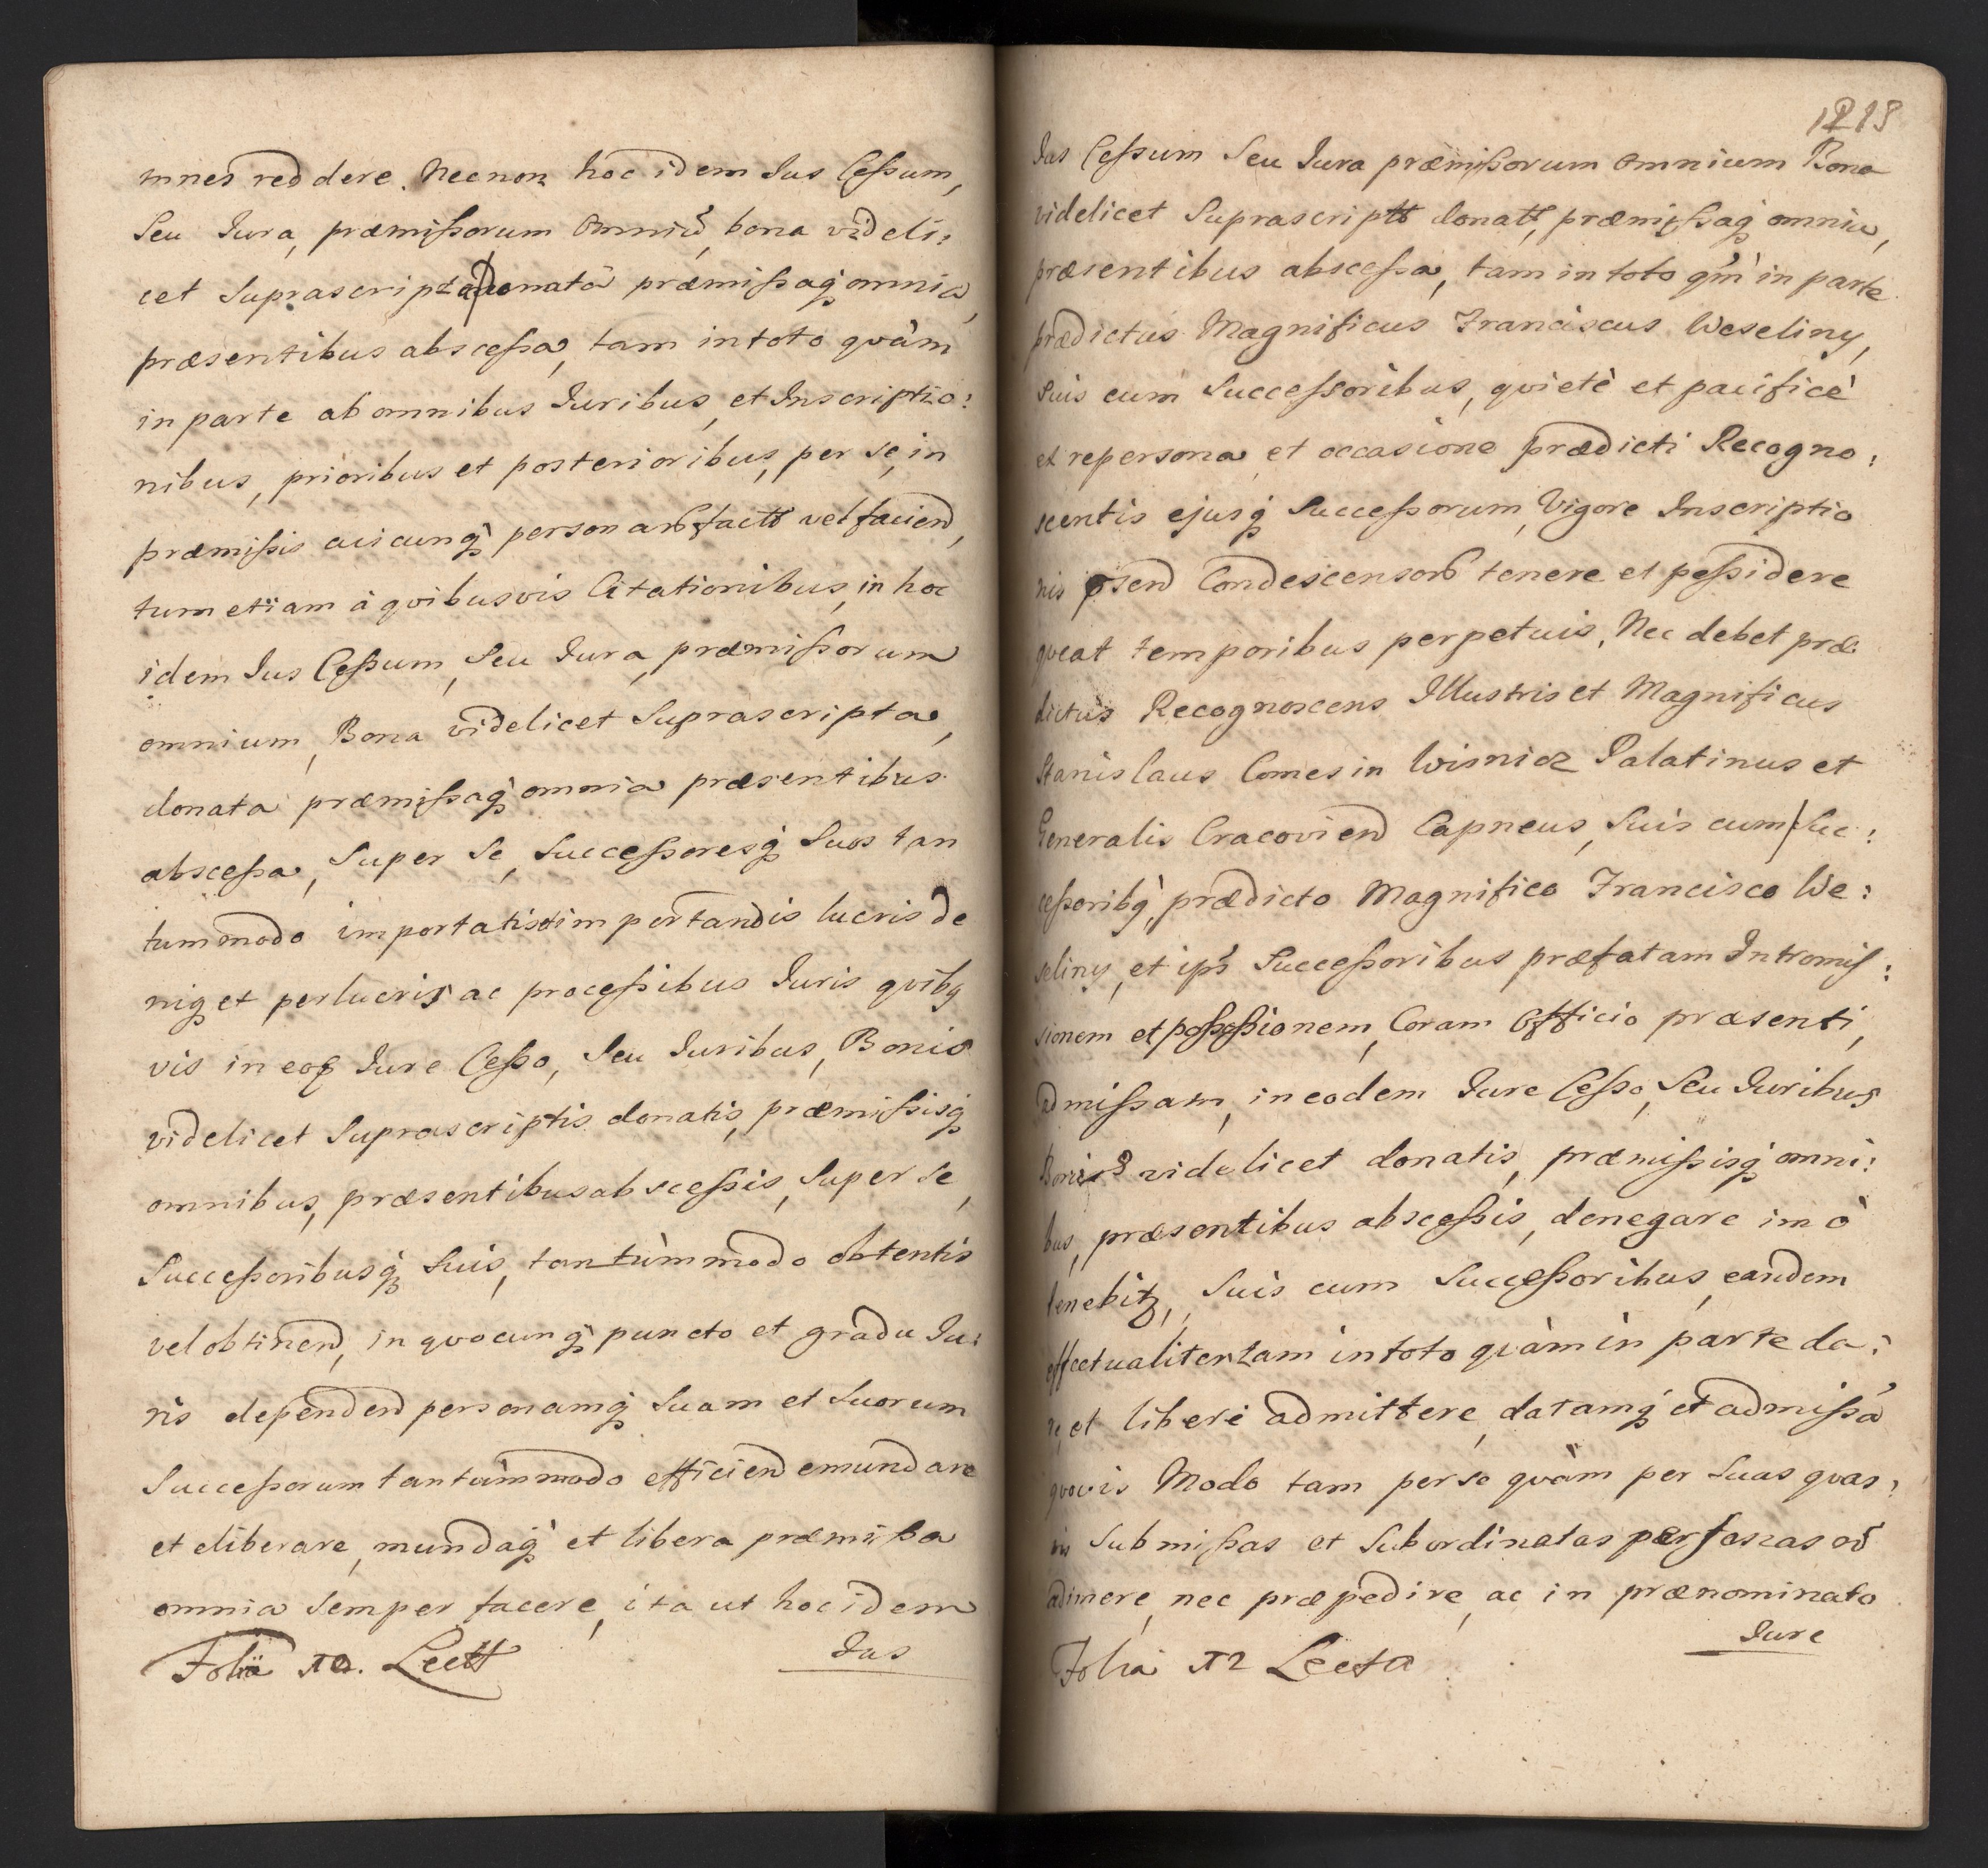 mnes reddere. Necnon hoc idem Jus Cessum,
Seu Jura, præmissorum Omniũ, bona videli:
cet Suprascripta Donata præmissaq̃ omnia,
præsentibus abscessa, tam in toto quàm
in parte ab omnibus Juribus, et Inscriptio:
nibus, prioribus et posterioribus, per se, in
præmissis cuicunq̃ personarũ factt vel faciend,
tum etiam à quibusvis Citationibus, in hoc
idem Jus Cessum, Seu Jura, præmissorum
omnium, Bona videlicet Suprascripta,
donata præmissaq̃ omnia præsentibus
abscessa, Super Se, Successoresq̃ Suos tan
tummodo importatis importandis lucris de
niq̃ et perlucris ac processibus Juris quibq
vis in eoq̃ Jure Cesso, Seu Juribus, Bonis
videlicet Suprascriptis donatis, præmissisq̃
omnibus, præsentibus abscessis, Super Se,
Successoribusq̃ Suis, tantùmmodo obtentis
vel obtinend, in quocunq̃ puncto et gradu Ju:
ris dependend personamq̃ Suam et Suorum
Successorum tantùmmodo efficiend emundare
et eliberare, mundaq̃ et libera præmissa
omnia Semper facere, ita ut hoc idem
Jus
Folia Lectt
1218
Jus Cessum Seu Jura præmissorum Omnium Bona
videlicet Suprascriptt donatt, præmissaq̃ omnia,
præsentibus abscessa, tam in toto qm̃ in parte
prædictus Magnificus Franciscus Weseliny,
Suis cum Successoribus, quietè et pacificè
et repersona et occasione prædicti Recogno:
scentis ejusq̃ Successorum, Vigore Inscriptio
nis psend Condescensorũ tenere et possidere
queat temporibus perpetuis, Nec debet præ
dictus Recognoscens Illustris et Magnificus
Stanislaus Comes in Wisnicz Palatinus et
Generalis Cracoviend Capneus, Suis cum Suc:
cessoribq̃, prædicto Magnifico Francisco We:
seliny, et ips̃ Successoribus præfatam Intromis:
sionem et possessionem, Coram Officio præsenti,
admissam, in eodem Jure Cesso, Seu Juribus
Bonis videlicet donatis, præmissisq̃ omni:
bus, præsentibus abscessis, denegare imò
tenebitz, Suis cum Successoribus, eandem
effectualiter tam in toto quàm in parte da:
re, et liberè admittere, datamq̃ et admissã
quovis Modo tam per se quàm per Suas quas:
vis Submissas et Subordinatas personas nõ
adimere, nec præpedire, ac in prænominato
Jure
Folia Lecta